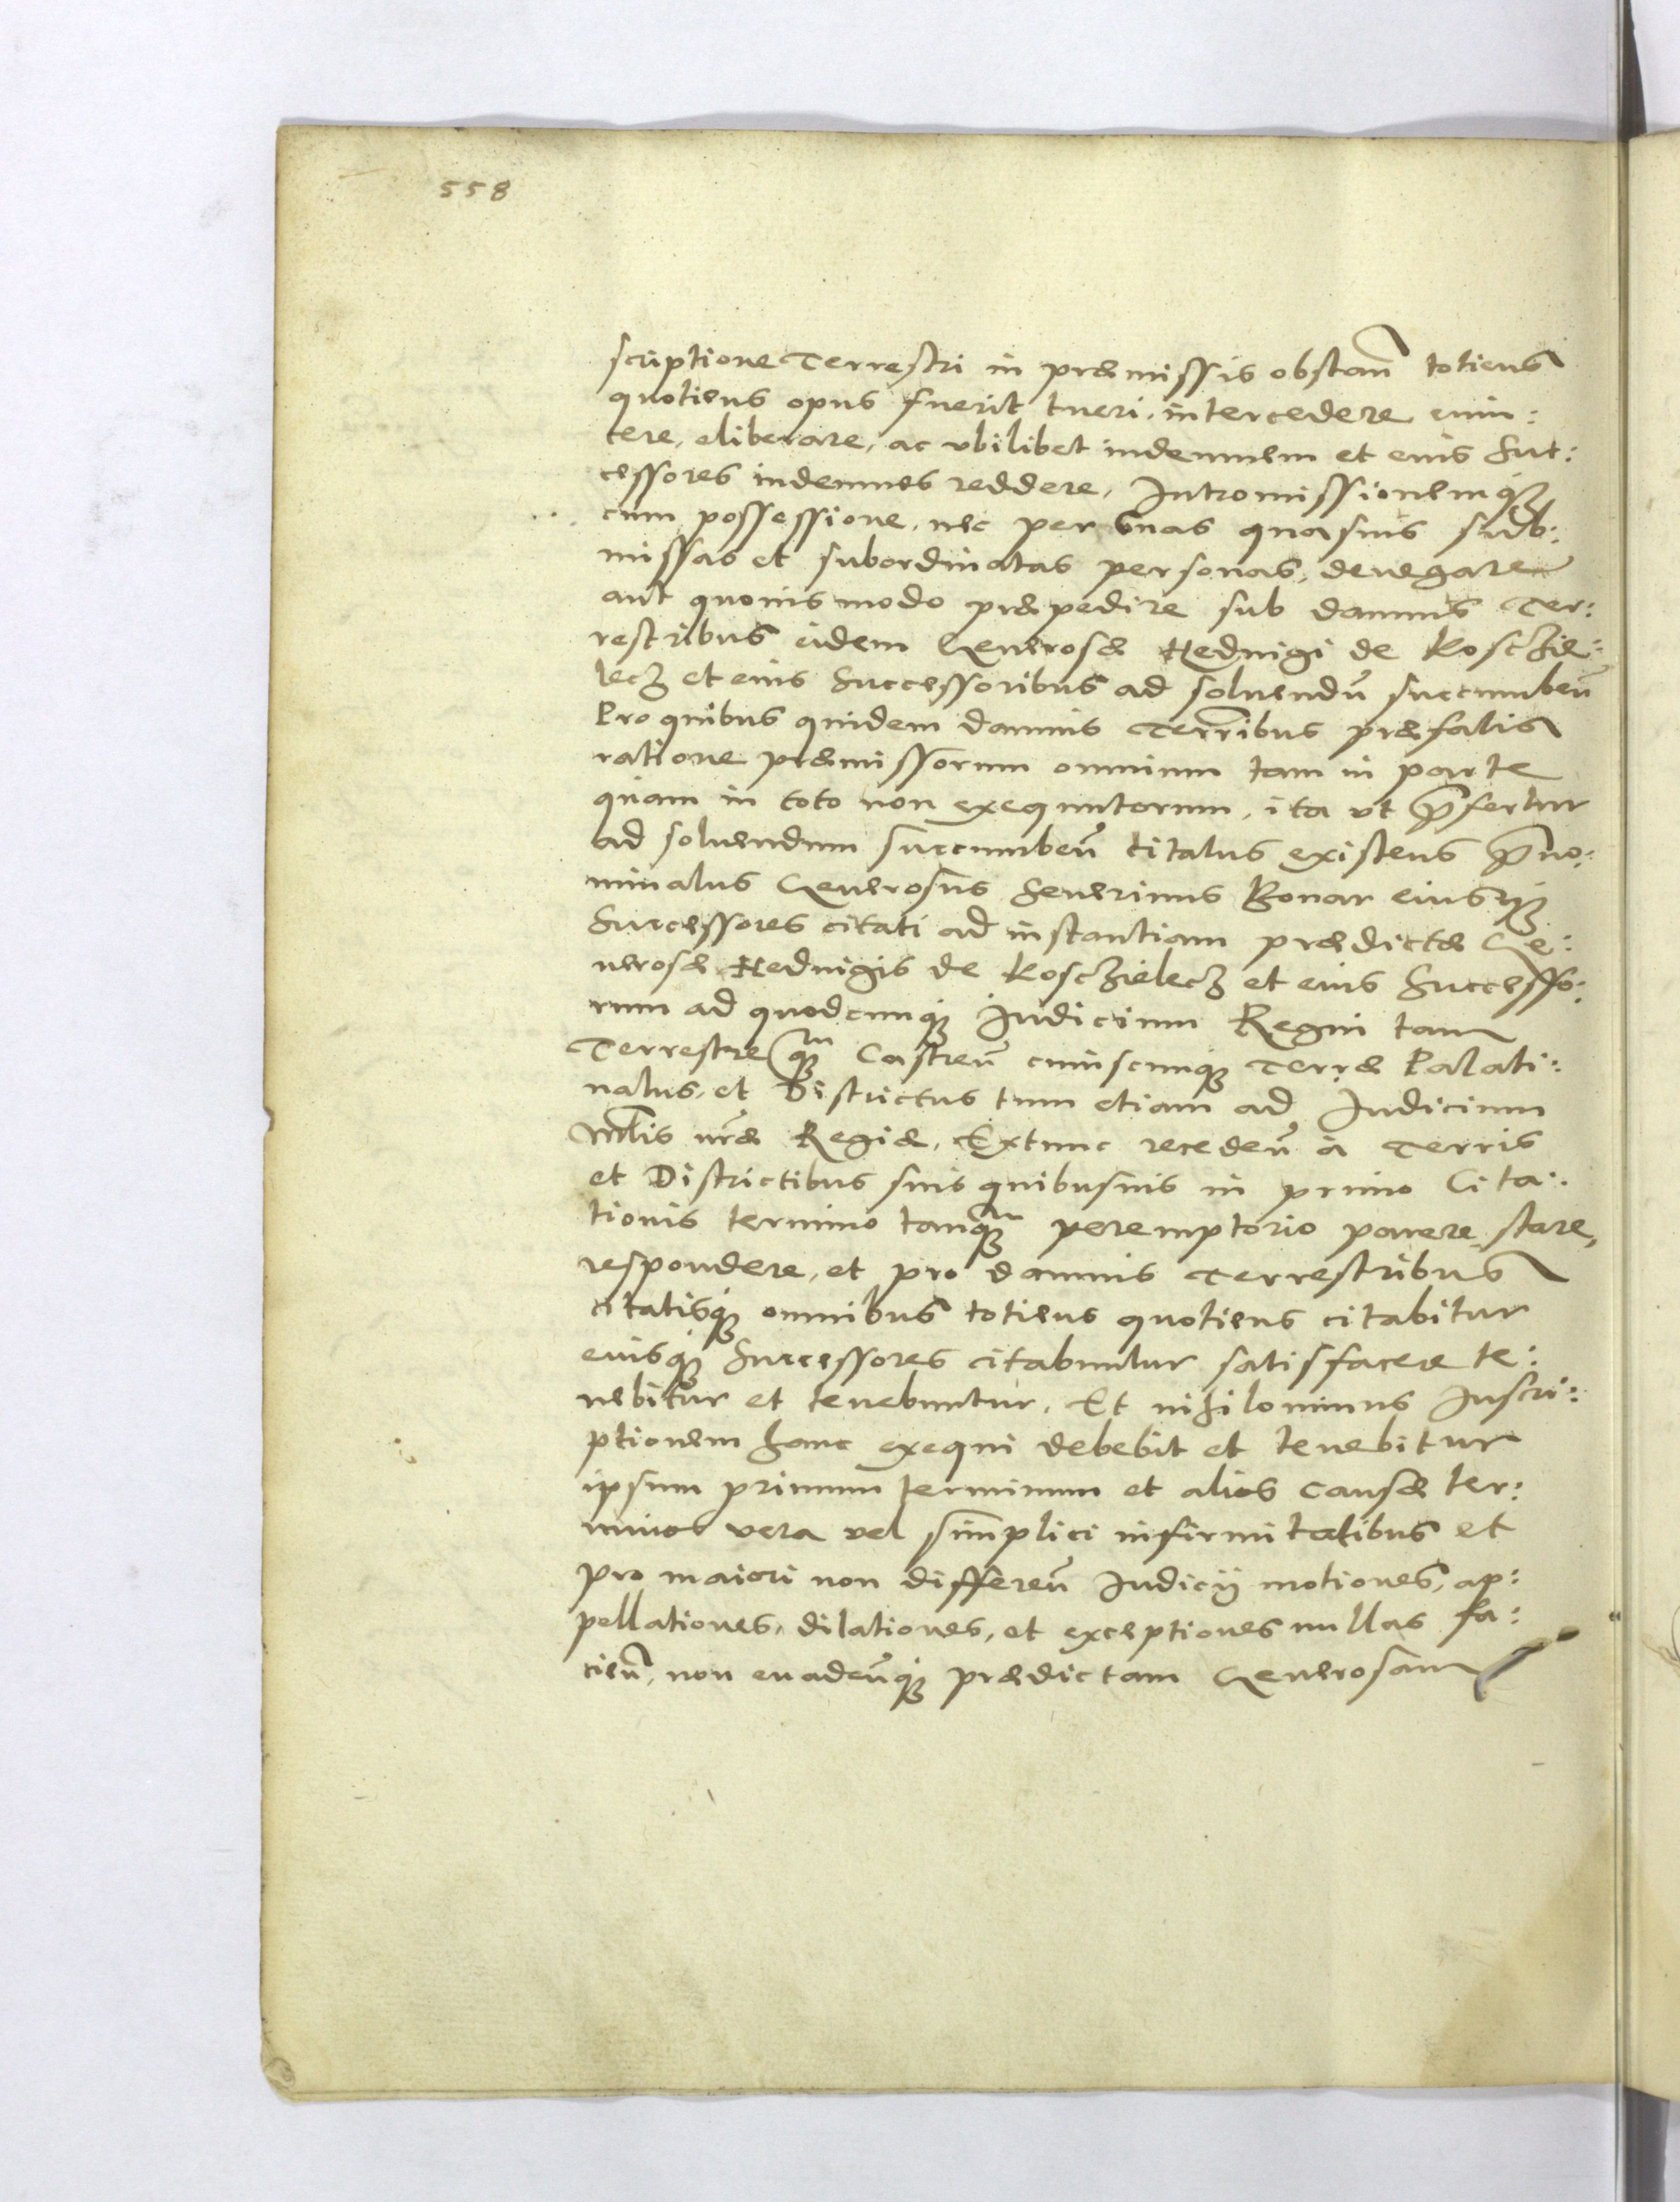 558
scriptione Terrestri in præmissis obstan̄ totiens
quotiens opus fuerit tueri, intercedere euin:
cere, eliberare, ac vbilibet indemnem et eius Suc:
cessores indemnes reddere, Intromissionemq́ꝫ
cum possessione, nec per suas quasuis sub:
missas et subordinatas personas, denegare
aut quouis modo præpedire sub damnis Ter:
restribus eidem Generosæ Heduigi de Kosczie:
lecz et eius Successoribus ad soluendū succumben̄
Pro quibus quidem damnis Terr̄ibus præfatis
ratione præmissorum omnium tam in parte
quam in toto non exequutorum, ita vt p̄fertur
ad soluendum succumben̄ citatus existens p̄no:
minatus Generosus Seuerinus Bonar eiusq́ꝫ
Successores citati ad instantiam prædictæ Ge:
nerosæ Heduigis de Kosczielecz et eius Successo:
rum ad quodcunqꝫ Iudicium Regni tam
Terrestre qꝫm Castren̄ cuiuscunqꝫ Terræ Palati:
natus, et Districtus tum etiam ad Iudicium
Mtis nr̄æ Regiæ, Extunc receden̄ à Terris
et Districtibus suis quibusuis in primo Cita:
tionis termino tanqꝫm peremptorio parere, stare,
respondere, et pro damnis Terrestribus
citatisq́ꝫ omnibus totiens quotiens citabitur
eiusq́ꝫ Successores citabuntur satisfacere te:
nebitur et tenebuntur. Et nihilominus Inscri:
ptionem hanc exequi debebit et tenebitur
ipsum primum terminum et alios causæ ter:
minos vera vel simplici infirmitatibus et
pro maiori non differen̄ Iudicij motiones, ap:
pellationes, dilationes, et exceptiones nullas fa:
cien̄, non euaden̄q́ꝫ prædictam Generosam